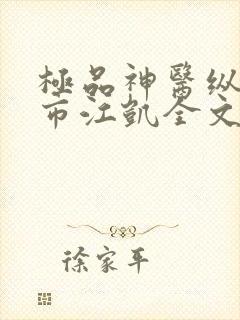 極品神醫纵
市江凱全文
徐家平